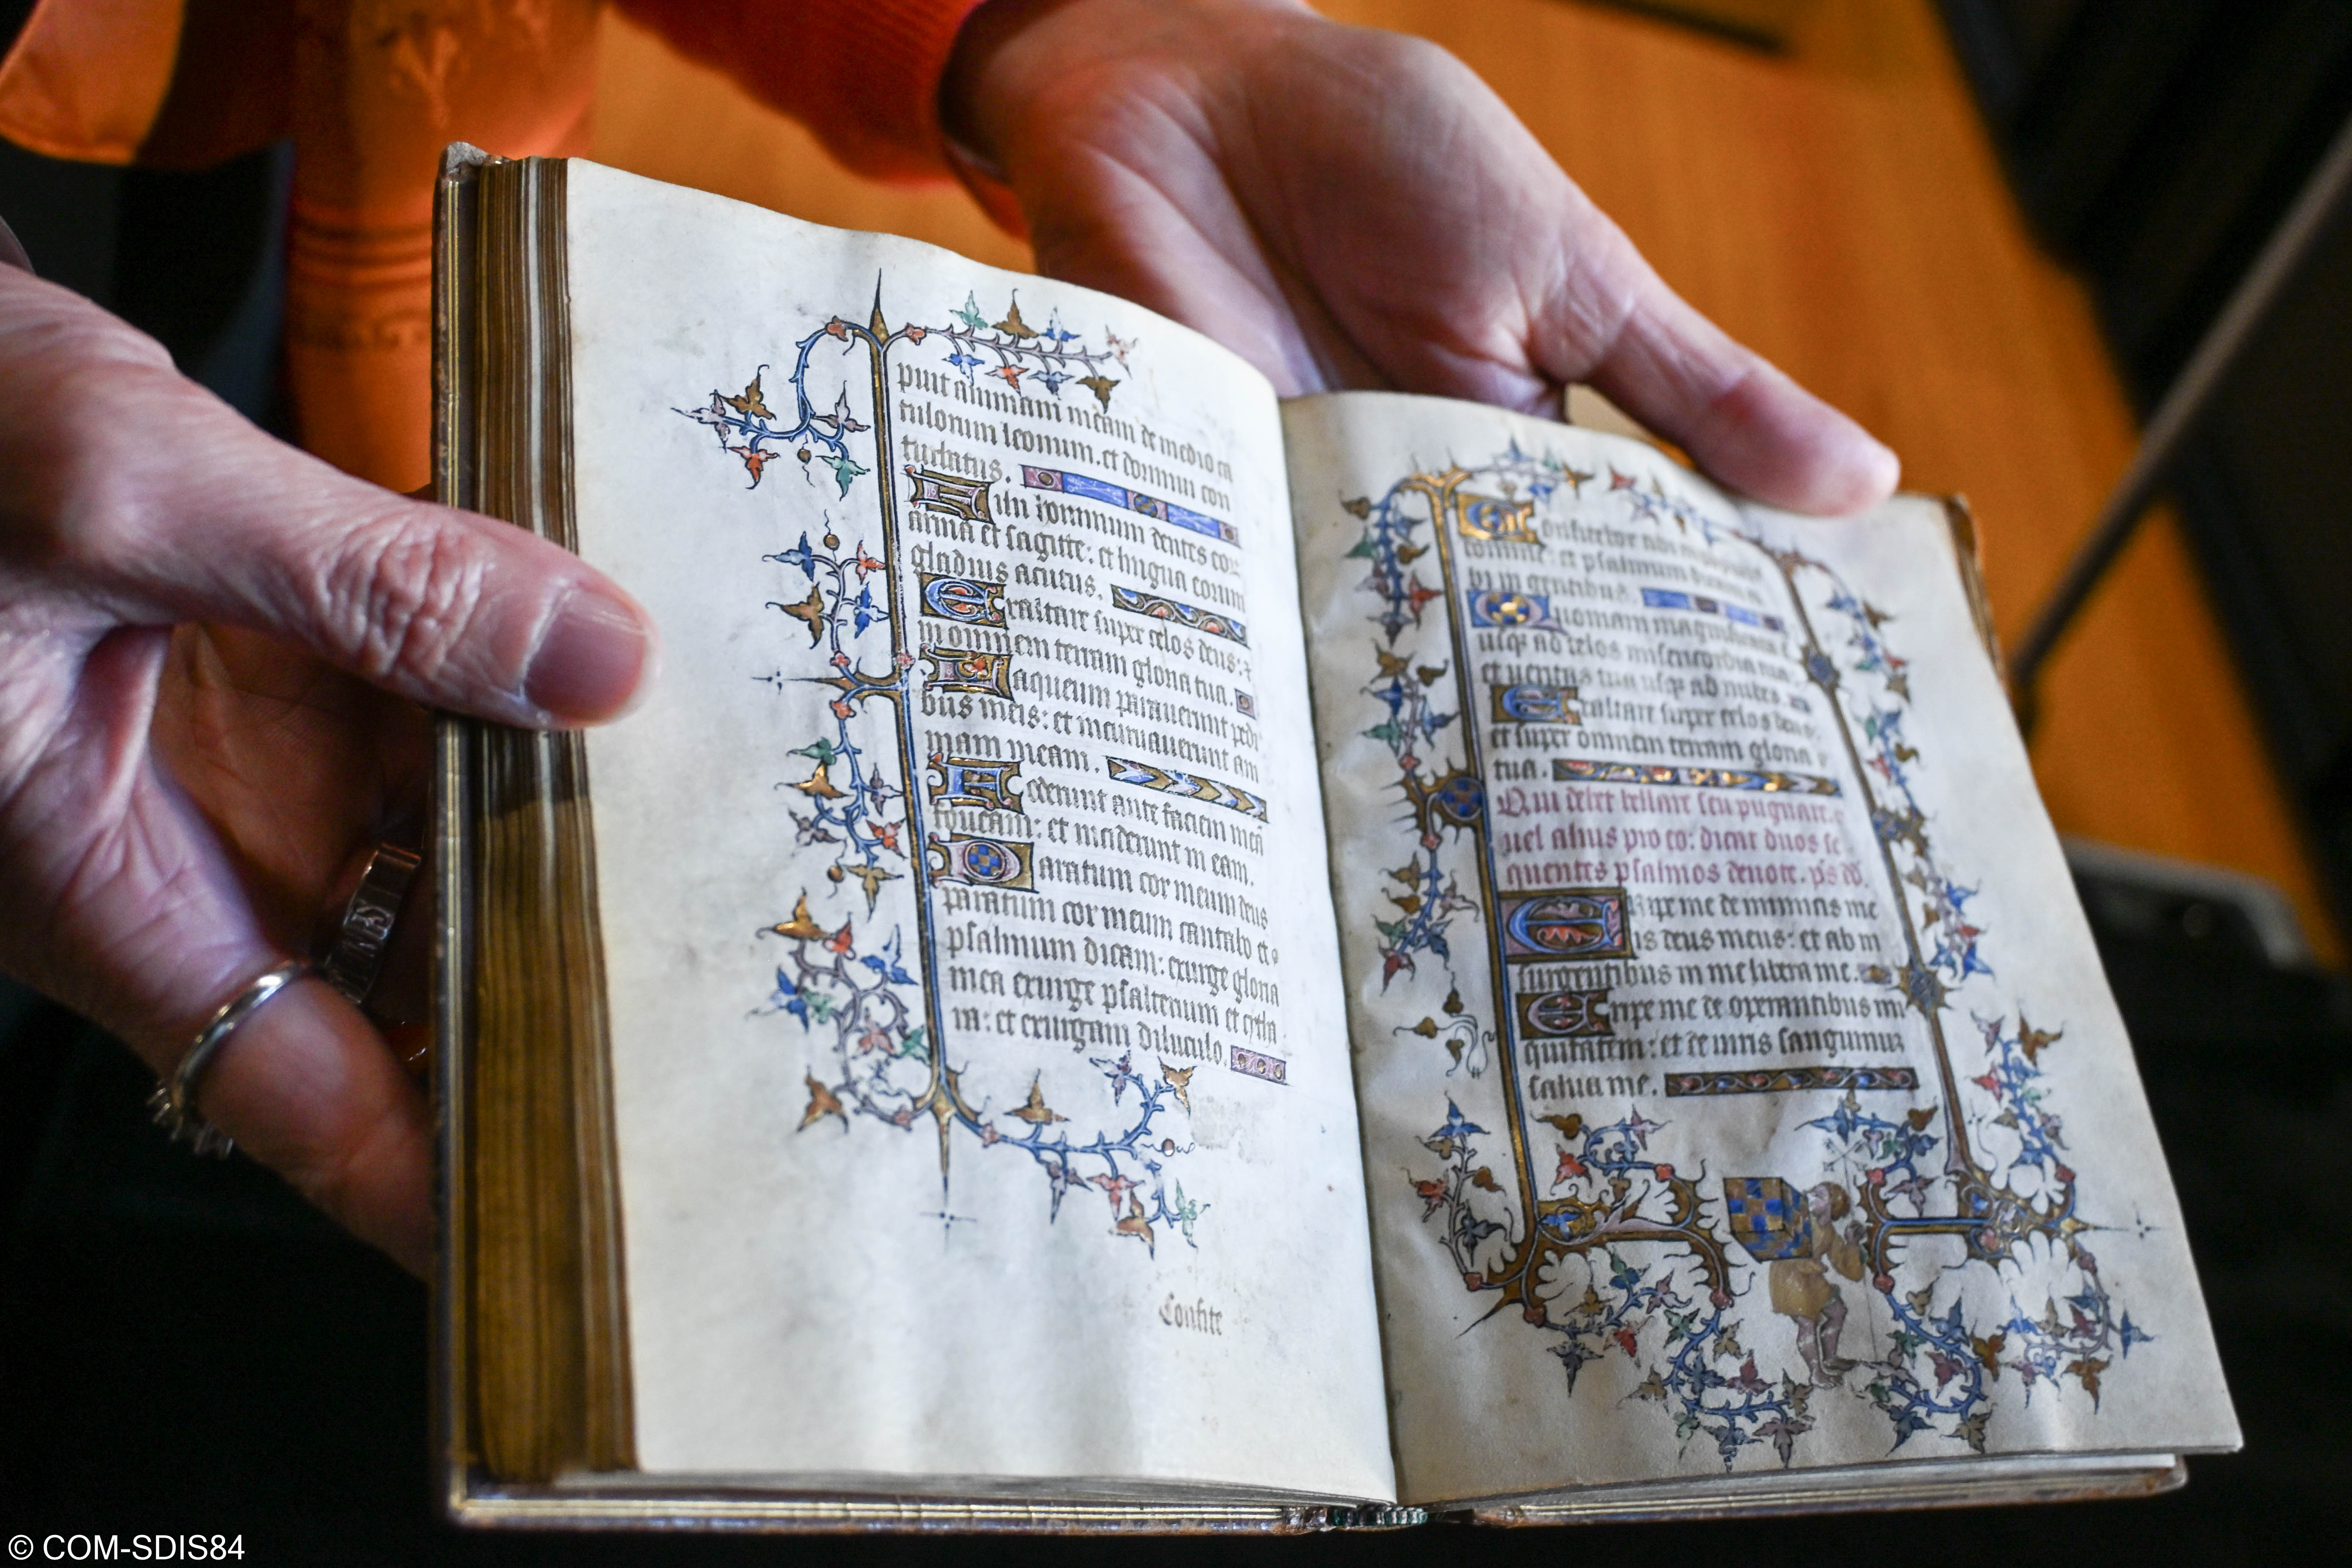 puit animam meam de medio ca
tulorum leonum. et dormiui con
turbatus.
Filii hominum dentes eor
arma et sagitte: et lingua eorum
gladius acutus.
Exaltare super celos deus: et
in omnem terram gloria tua.
Laqueum parauerunt pedi
bus meis: et incuruauerunt am
mam meam.
Foderunt ante faciem meā
foueam: et inciderunt in eam.
Paratum cor meum deus
paratum cor meum cantabo et
psalmum dicam: exurge gloria
mea exurge psalterium et cytha
ra: et exurgam diluculo.
Confite
Confitebor tibi in populis
domine: et psalmum dicam ti
bi in gentibus.
Quoniam magnificata ē
usqȝ ad celos misericordia tua:
et ueritas tua usqȝ ad nubes.
Exaltare super celos deus:
et super omnem terram gloria
tua.
Qui debet bellare seu pugnare.
uel alius pro eo: dicat duos se
quentes psalmos deuote. ps dd.
Eripe me de inimicis me
is deus meus: et ab in
surgentibus in me libera me.
Eripe me de operantibus ini
quitatem: et de uiris sanguinuȝ
salua me.
© COM-SDIS84